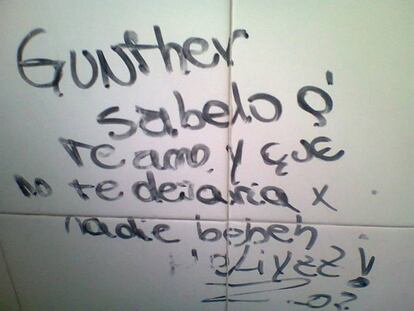 Gunther
sabelo Q'
te amo y que
no te dejaria x
nadie beben